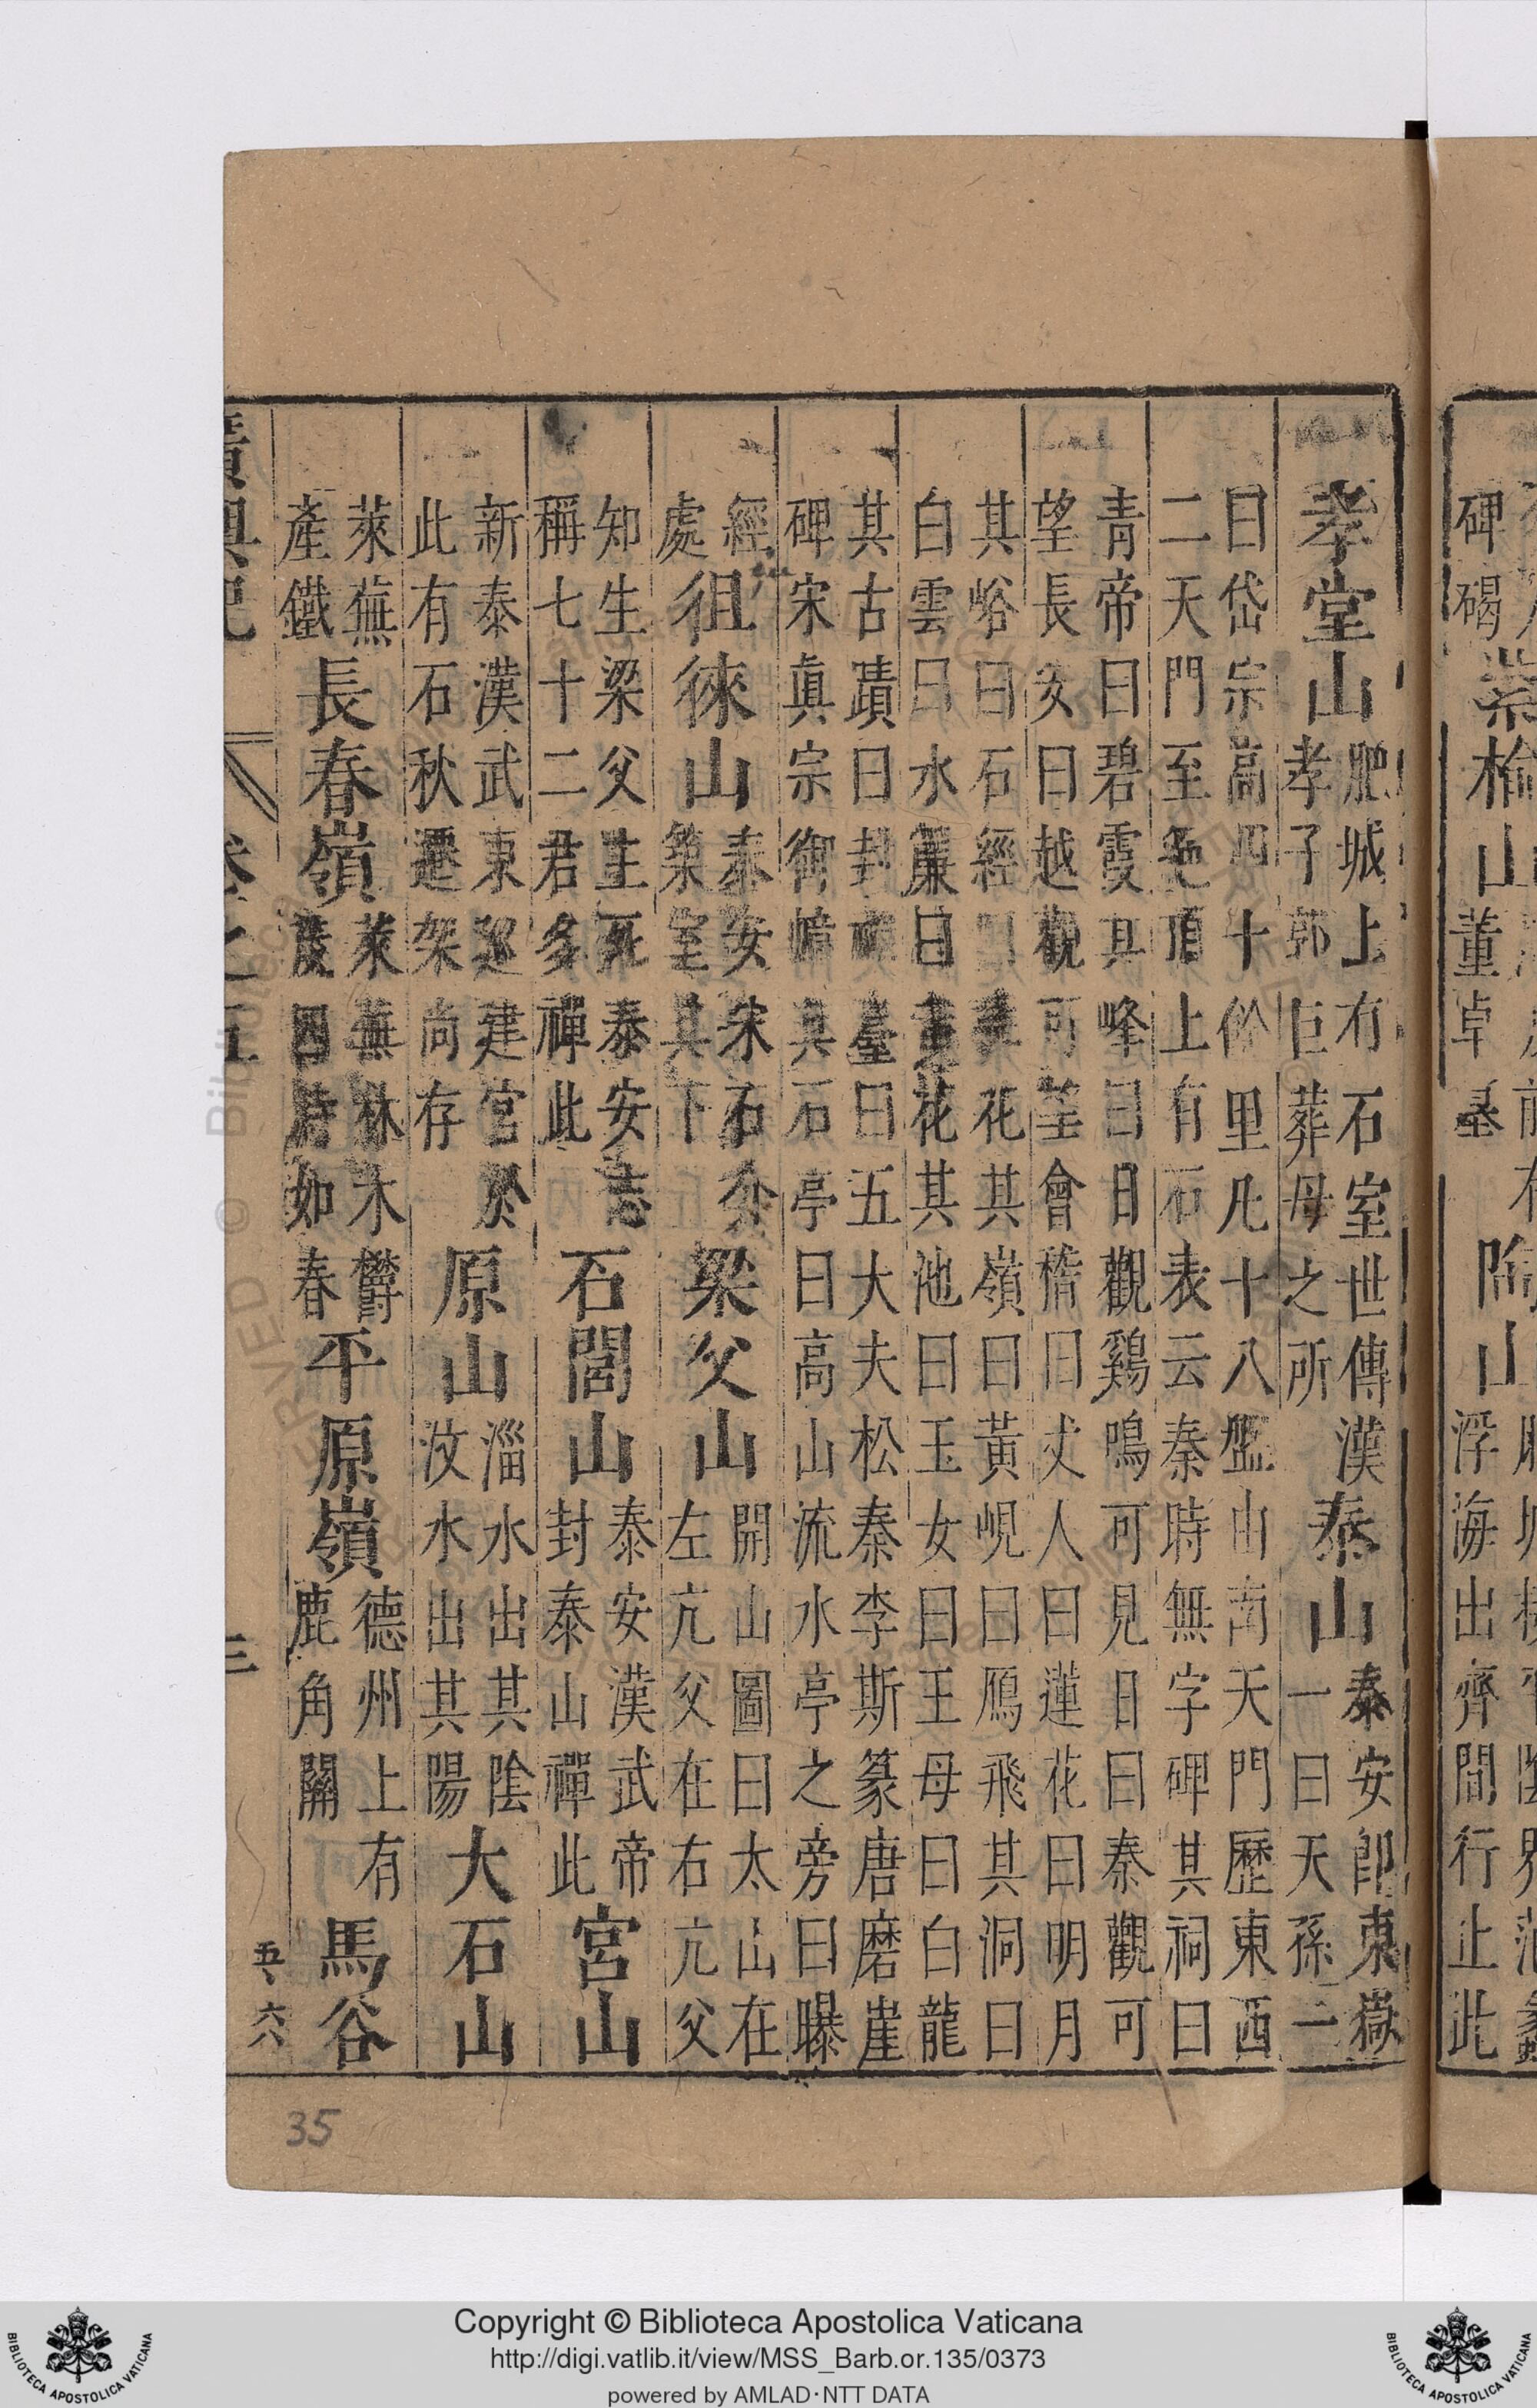 碑碣 紫榆山 董卓 墓 陶山 浮海出齊間行止此
孝堂山 肥城上有石室世傳漢 孝子郭巨葬母之所 泰山 泰安即東嶽 一曰天孫二
曰岱宗高四十餘里凡十八盤山南天門歷東西
二天門至絶頂上有石表云秦時無字碑其祠曰
青帝曰碧霞其峰曰日觀鷄鳴可見日曰秦觀可
望長安曰越觀可望會稽曰丈人曰蓮花曰明月
其峪曰石經 其花其嶺曰黃峴曰鴈飛其洞曰
白雲曰水簾曰 花其池曰玉女曰王母曰白龍
其古蹟曰封禪臺曰五大夫松秦李斯篆唐磨崖
碑宋眞宗御幛其石亭曰高山流水亭之旁曰曝
經處 徂徠山 泰安宋石介 築室其下 梁父山 開山圖曰太山在 左亢父在右亢父
知生梁父主死泰安志 稱七十二君多禪此 石閭山 泰安漢武帝 封泰山禪此 宮山
新泰漢武東巡建宮於 此有石秋遷架尚存 原山 淄水出其陰 汶水出其陽 大石山
萊蕪 產鐵 長春嶺 萊蕪林木欝 茂四時如春 平原嶺 德州上有 鹿角關 馬谷
廣輿記 卷之五 三 五、六
35
Copyright © Biblioteca Apostolica Vaticana
http://digi.vatlib.it/view/MSS_Barb.or.135/0373
powered by AMLAD·NTT DATA
BIBLIOTECA APOSTOLICA VATICANA
BIBLIOTECA APOSTOLICA VATICANA